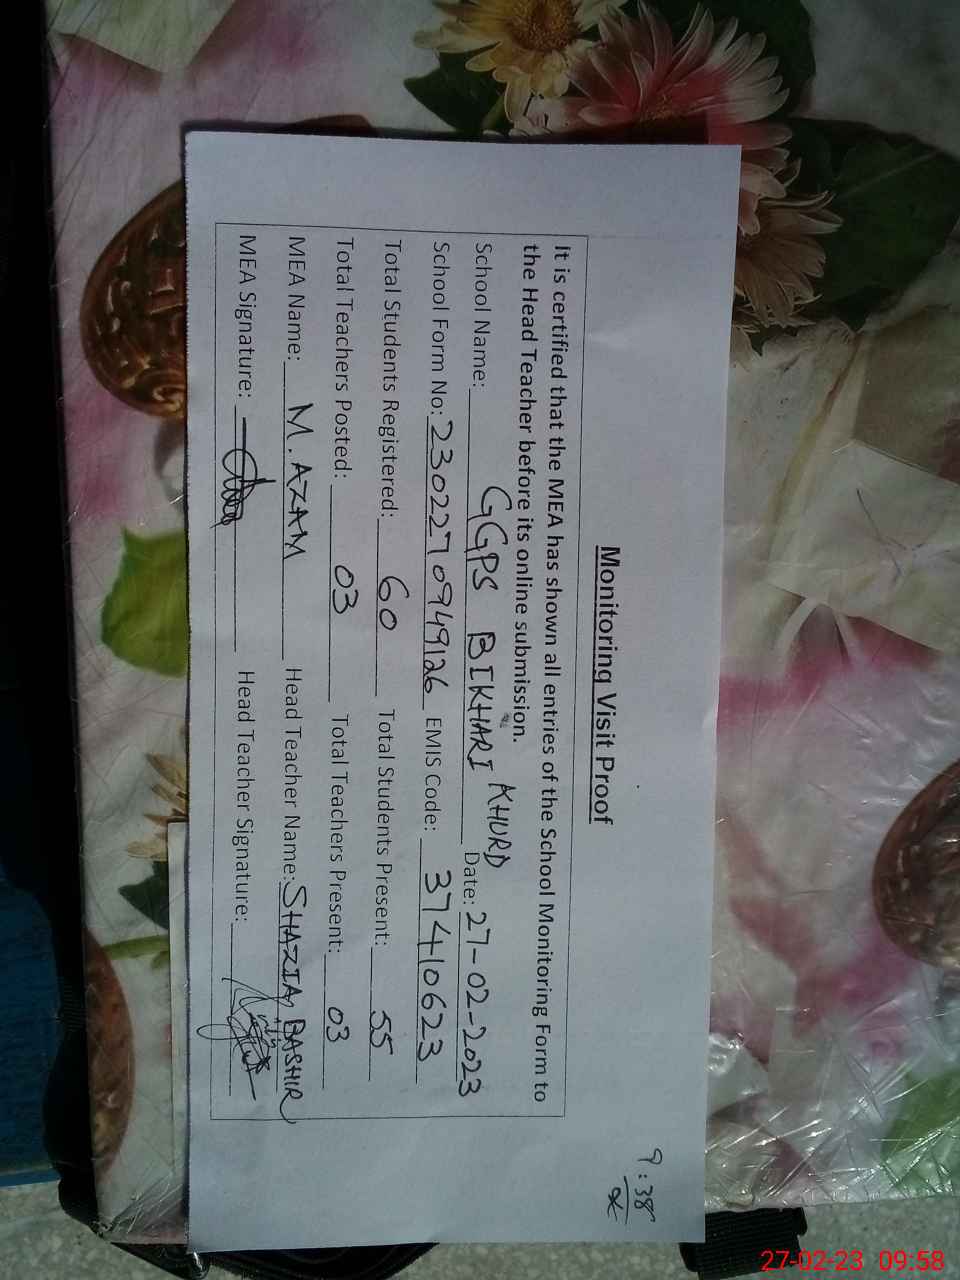 9:38
Monitoring Visit Proof
It is certified that the MEA has shown all entries of the School Monitoring Form to
the Head Teacher before its online submission.
School Name: GGPS BIKHARI KHURD Date: 27-02-2023
School Form No: 2302270949126 EMIS Code: 37410623
Total Students Registered: 60 Total Students Present: 55
Total Teachers Posted: 03 Total Teachers Present: 03
MEA Name: M. AZAM Head Teacher Name: SHAZIA BASHIR
MEA Signature: Head Teacher Signature:
27-02-23 09:58